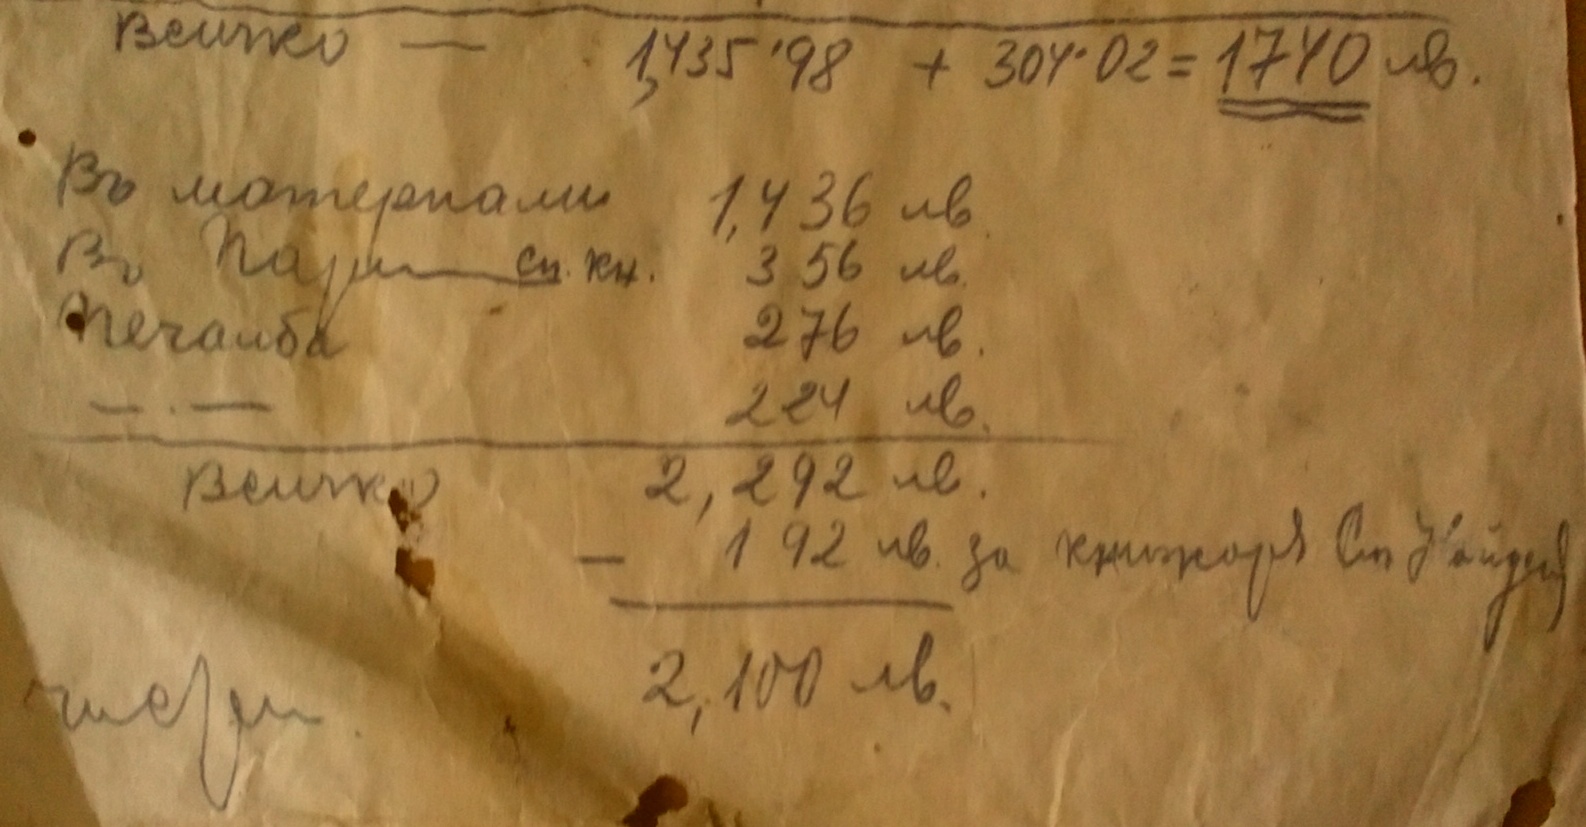 Всичко — 1,435·98 + 304·02 = 1740 лв.
Въ материали 1,436 лв.
Въ Пари — сп. кн. 356 лв.
Печалба 276 лв.
— . — 224 лв.
Всичко 2,292 лв.
— 192 лв. за книжаря
2,100 лв.